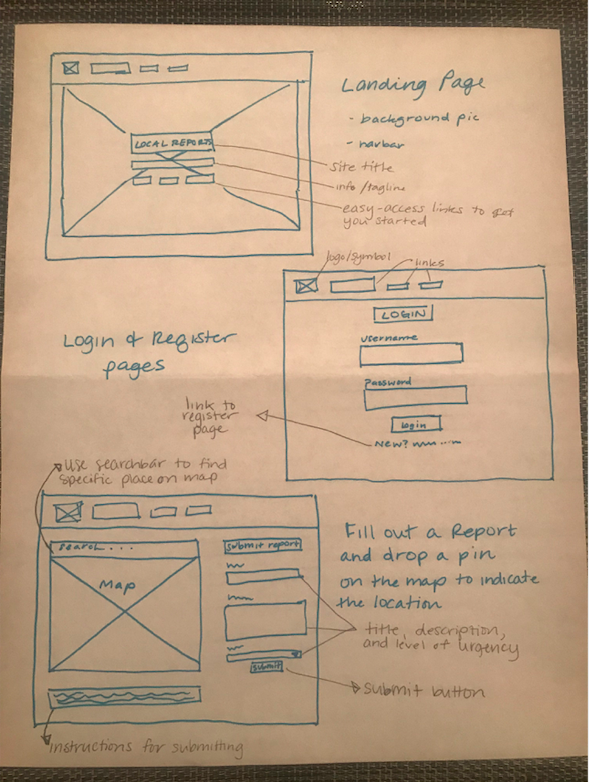 Landing Page
- background pic
- navbar
LOCAL REPORTS
site title
info/tagline
easy-access links to get
you started
logo/symbol
links
LOGIN
Login & Register
pages
username
Password
login
New?
link to
register
page
Use searchbar to find
specific place on map
search...
Map
submit report
submit
Fill out a Report
and drop a pin
on the map to indicate
the location
title, description,
and level of urgency
submit button
instructions for submitting